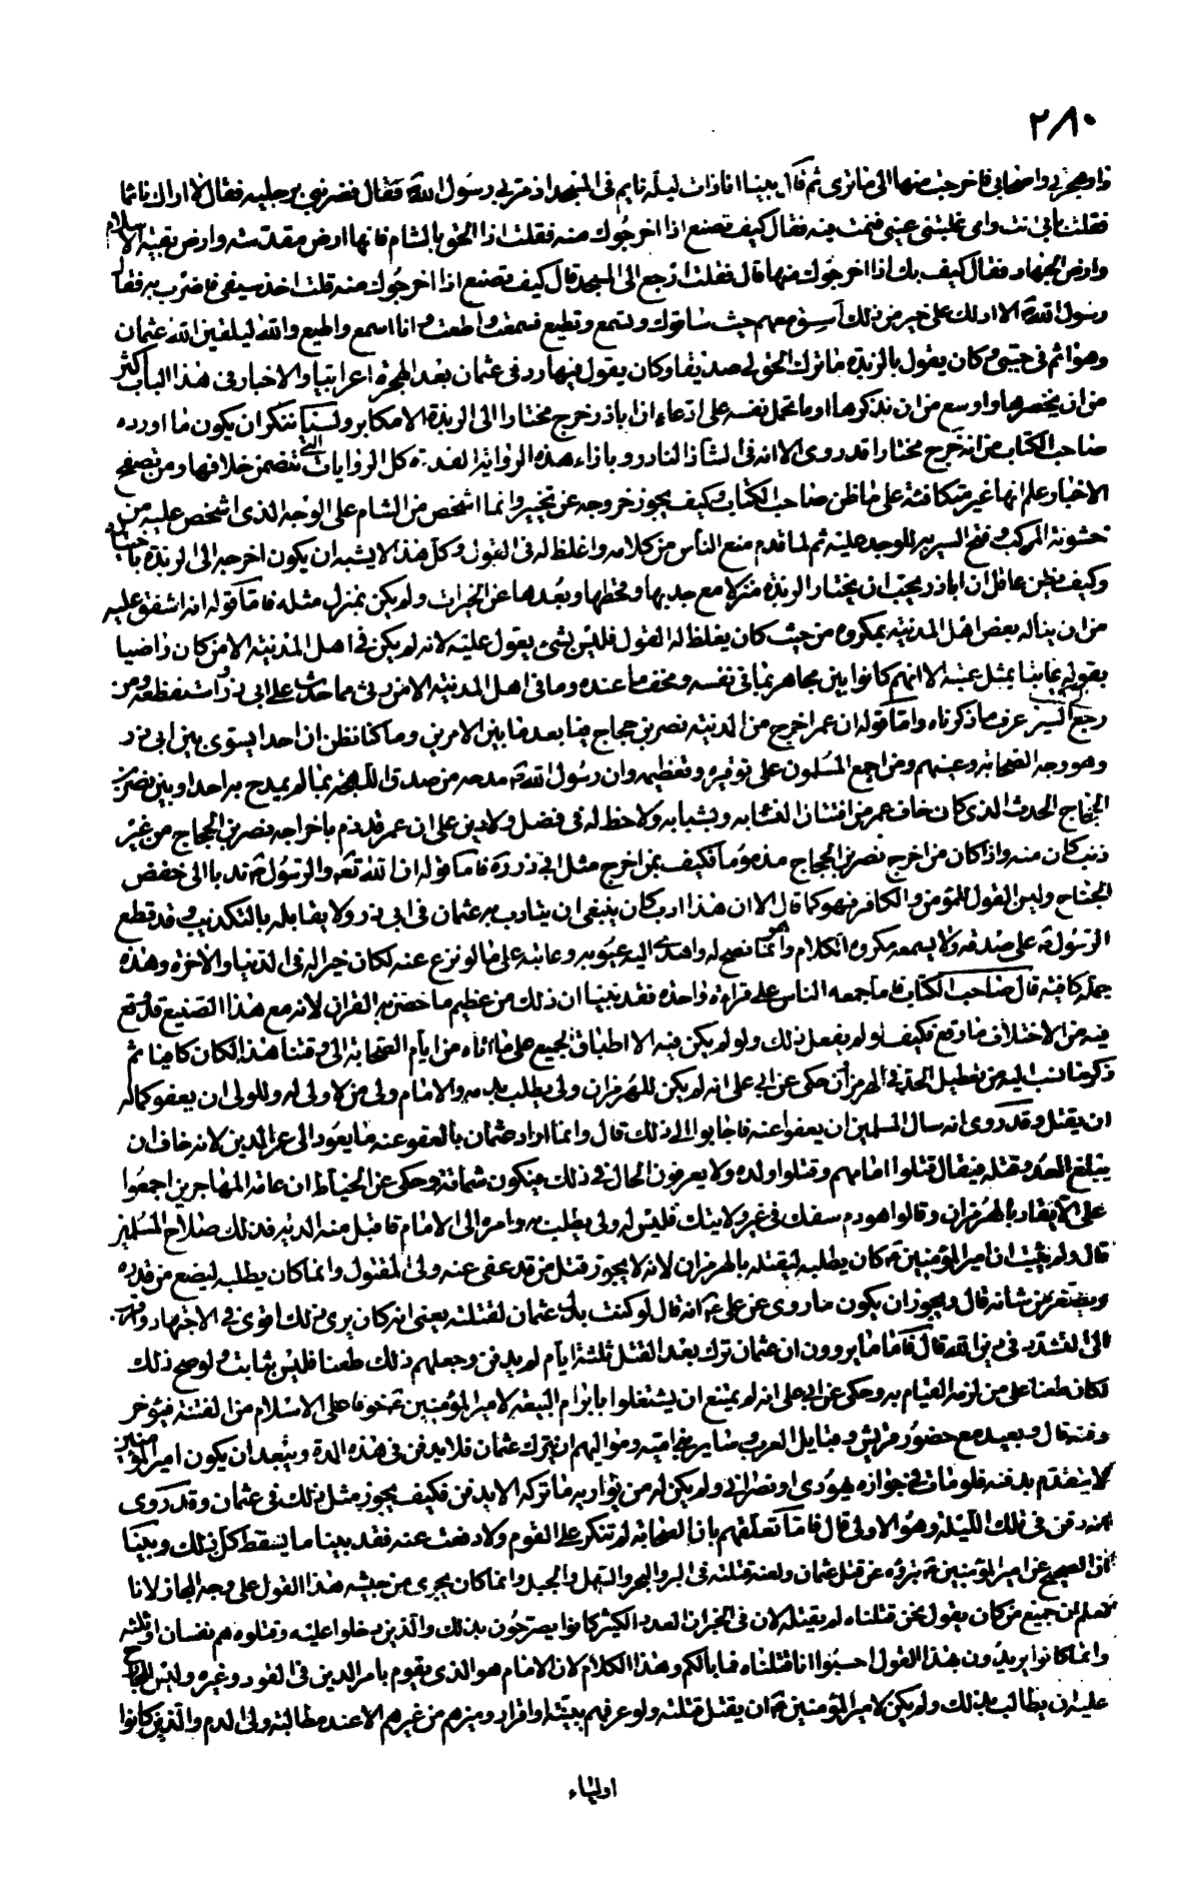 ٢٨٠
دار هجرتي واصحابي فاخرجت منها الى ما ترى ثم قال بينا انا ذات ليلة نايم في المسجد اذ مر بي رسول الله فقال فضربني برجليه فقال لا اراك نائما
فقلت بابي انت وامي غلبتني عيني فنمت فيه فقال كيف تصنع اذا اخرجوك منه فقلت اذا الحق بالشام فانها ارض مقدسة وارض بقية الاسلام
وارض الجهاد فقال كيف بك اذا اخرجوك منها قال فقلت ارجع الى المسجد قال كيف تصنع اذا اخرجوك منه قلت اخذ سيفي فاضرب به فقال
رسول الله الا ادلك على خير من ذلك انسق معهم حيث ساقوك وتسمع وتطيع فسمعت واطعت وانا اسمع واطيع والله ليلقين الله عثمان
وهو اثم في جنبي وكان يقول بالربذة ما ترك الحق لي صديقا وكان يقول فيها رد في عثمان بعد الهجرة اعرابيا والاخبار في هذا الباب اكثر
من ان نحصرها واوسع من ان نذكرها وما يحمل نفسه على ادعاء ان اباذر خرج مختارا الى الربذة الا مكابر ولسنا ننكر ان يكون ما اورده
صاحب الكتاب من انه خرج مختارا قد روى الا انه في الشاذ النادر وبازاء هذه الرواية الفذة كل الروايات التي تتضمن خلافها ومن تصفح
الاخبار علم انها غير متكافئة على ما ظن صاحب الكتاب وكيف يجوز خروجه عن تخيير وانما اشخص من الشام على الوجه الذي اشخص عليه من
خشونة المركب وقبح السير به للوجد عليه ثم لما قدم منع الناس من كلامه واغلظ له في القول وكل هذا لا يشبه ان يكون اخرجه الى الربذة باختياره
وكيف يظن عاقل ان اباذر يحب ان يختار الربذة منزلا مع جدبها وقحطها وبعدها عن الخيرات ولم يكن بمنزل مثله فاما قوله انه اشفق عليه
من ان يناله بعض اهل المدينة بمكروه من حيث كان يغلظ له القول فليس بشيء يعول عليه لانه لم يكن في اهل المدينة الا من كان راضيا
بقوله عاتبا بمثل عتبه الا انهم كانوا بين مجاهر بما في نفسه ومخف ما عنده وما في اهل المدينة الا من رثى مما حدث على ابي ذر واستفظعه ومن
رجع السير عرف ما ذكرناه واما قوله ان عمر اخرج من المدينة نصر بن حجاج فيا بعد ما بين الامرين وما كنا نظن ان احدا يسوى بين ابي ذر
وهو وجه الصحابة وعينهم ومن اجمع المسلمون على توقيره وتعظيمه وان رسول الله مدحه من صدق اللهجة بما لم يمدح به احدا وبين نصر بن
الحجاج الحدث الذي كان خاف عمر من افتتان النساء به وبشبابه ولا حظ له في فضل ولا دين على ان عمر قد ذم باخراجه نصر بن الحجاج من غير
ذنب كان منه واذا كان من اخرج نصر بن الحجاج مذموما فكيف بمن اخرج مثل ابي ذر ره فاما قوله ان الله تعه والرسول ندبا الى خفض
الجناح ولين القول للمؤمن والكافر فهو كما قال الا ان هذا ادب كان ينبغي ان يتادب به عثمان في ابي ذر ولا يقابله بالتكذيب وقد قطع
الرسول على صدقه ولا يسمعه مكروه الكلام وانما هو نصح له واهدى اليه عيوبه وعاتبه على ما لو نزع عنه لكان خيرا له في الدنيا والاخرة وهذه
جملة كافية قال صاحب الكتاب فاما جمعه الناس على قراءة واحدة فقد بينا ان ذلك من عظيم ما خص به القران لانه مع هذا الصنيع قد وقع
فيه من الاختلاف ما وقع فكيف لو لم يفعل ذلك ولو لم يكن فيه الا اطباق الجميع على ما اتاه من ايام الصحابة الى وقتنا هذا لكان كافيا ثم
ذكر ما نسب اليه من تعطيل الحد في الهرمزان حكى عن ابي على انه لم يكن للهرمزان ولي يطلب بدمه والامام ولي من لا ولي له وللولي ان يعفو كما له
ان يقتل وقد روى انه سال المسلمين ان يعفوا عنه فاجابوا الى ذلك قال وانما اراد عثمان بالعفو عنه ما يعود الى عز الدين لانه خاف ان
يبلغ العدو قتله فيقال قتلوا امامهم وقتلوا ولده ولا يعرفون الحال في ذلك فيكون شماتة وحكى عن الخياط ان عامة المهاجرين اجمعوا
على الا يقاد بالهرمزان وقالوا هو دم سفك في غير ولايتك فليس له ولي يطلب به وامره الى الامام فاقبل منه الدية فذلك صلاح للمسلمين
قال ولم يثبت ان امير المؤمنين كان يطلبه ليقتله بالهرمزان لانه لا يجوز قتل من قد عفى عنه ولي المقتول وانما كان يطلبه ليضع من قدره
ويصغر من شانه قال ويجوز ان يكون ما روى عن علي انه قال لو كنت بدل عثمان لقتلته يعني انه كان يرى ذلك اقوى في الاجتهاد واقرب
الى التشدد في دين الله قال فاما ما يروون ان عثمان ترك بعد القتل ثلثة ايام لم يدفن وجعلهم ذلك طعنا فليس بثابت ولو صح ذلك
لكان طعنا على من لزمه القيام به وحكى عن ابي على انه لم يمتنع ان يشتغلوا بابرام البيعة لامير المؤمنين خوفا على الاسلام من الفتنة فيؤخر
دفنه قال وبعيد مع حضور قريش وقبايل العرب وساير بني امية ومواليهم ان يترك عثمان فلا يدفن في هذه المدة ويبعد ان يكون امير المؤمنين
لا يتقدم بدفنه فلو مات في جواره يهودي او نصراني ولم يكن له من يواريه ما تركه الا يدفن فكيف يجوز مثل ذلك في عثمان وقد روى
انه دفن في تلك الليلة وهو الاولى قال فاما تعلقهم بان الصحابة لم تنكر على القوم ولا دفعت عنه فقد بينا ما يسقط كل ذلك وبينا
ان الصحيح عن امير المؤمنين تبرؤه عن قتل عثمان ولعنه قتلته في البر والبحر والسهل والجبل وانما كان يجري من جيشه هذا القول على وجه المجاز لانا
نعلم ان جميع من كان يقول نحن قتلناه لم يقتله لان في الخبر ان العدد الكثير كانوا يصرحون بذلك والذين دخلوا عليه وقتلوه هم نفسان او ثلثة
وانما كانوا يريدون بهذا القول احسبوا انا قتلناه فما بالكم وهذا الكلام لان الامام هو الذي يقوم بامر الدين في القود وغيره وليس للخارج
عليه ان يطالب بذلك ولم يكن لامير المؤمنين ان يقتل قتلته ولو عرفهم ببينة او اقرار وميزهم من غيرهم الا عند مطالبة ولي الدم والذين كانوا
اولياء